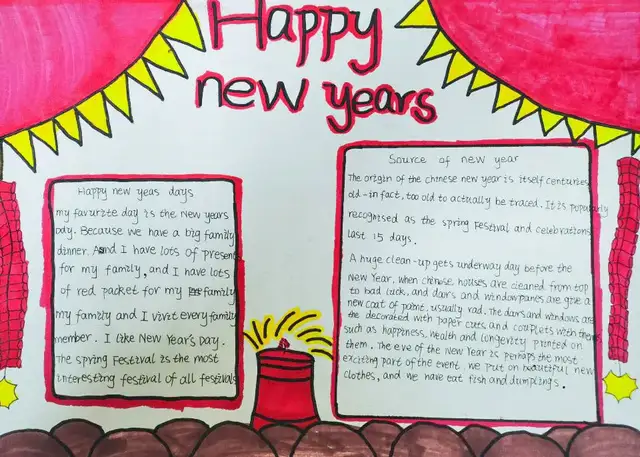 Happy
new years
Happy new yeas days
my favurite day is the New years
Day. Because we have a big family
dinner. And I have lots of present
for my family, and I have lots
of red packet for my family
my family and I visit every family
member. I like New Year's Day.
The Spring Festival is the most
interesting festival of all festivals
Source of new year
The origin of the chinese new year is itself centuries
old-in fact, too old to actually be traced. It is popularly
recognised as the spring Festival and celebrations
last 15 days.
A huge clean-up gets underway day before the
New Year, when chinese houses are cleaned from top
to bad luck, and dairs and windowpanes are give a
new coat of paint, usually rad. The dairs and windows are
the decorated with paper cuts and couplets with them
such as happiness, wealth and longevity printed on
them. The eve of the New Year is perhaps the most
exciting part of the event. we put on beautiful new
clothes, and we have eat fish and dumplings.